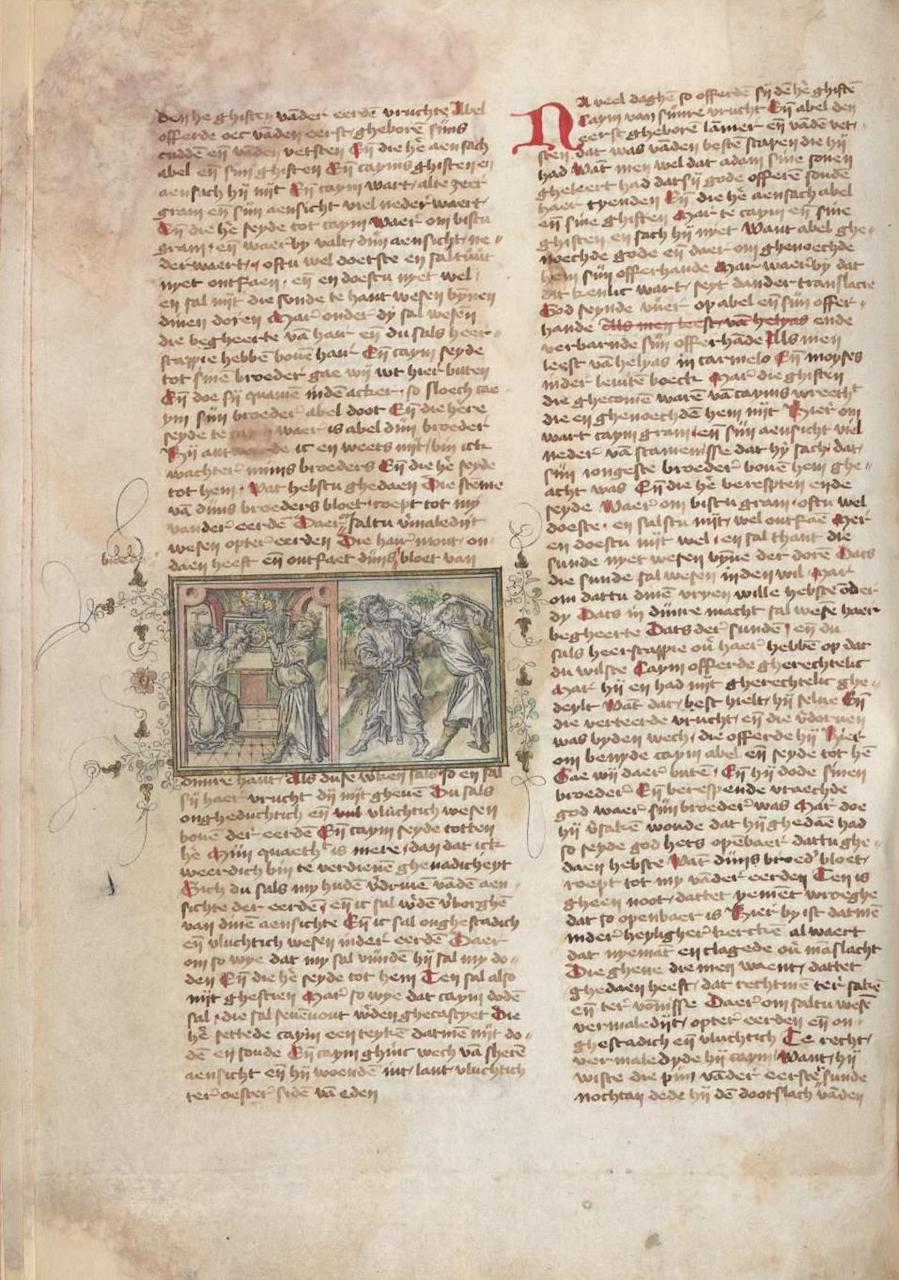 den he ghiften vāder eerdē vruchtē Abel
offerde oec vāden eerst gheborē sijns
cuddē eñ vādē vetsten Eñ die hē aensach
abel eñ sijn ghiften Eñ cayms ghiften en
aensach hij nyt Eñ caym wart alte zeer
gram eñ sijn aensicht viel nederwaert
Eñ die hē seyde tot caym Waer om bistu
gram eñ waer by valt dijn aensicht ne
derwaert oftu wel doetste en saltuut
nyet ontfaen eñ en doestu nyet wel
en sal nyt die sonde te hant wesen bynnen
dinen doren Mar onder dy sal wesen
die begheerte vā haer eñ du sals heer
scappie hebbē bouē haer Eñ caym seyde
tot sinē broeder gae wy wt hier buten
Eñ doe sij quamē indē acker so sloech ca
ym sijn broeder abel doot Eñ die hēre
seyde te waer is abel dijn broeder
Hij ic en weets nyt bin ick
wachter mijns broeders Eñ die hē seyde
tot hem Wat hebstu ghedaen Die stēme
vā dijns broeders bloet roept tot my
vander eerdē Daer saltu v̄maledijt
wesen opter eerden Die haer mont on
daen heeft eñ ontfaet dijns bloet van
broed
dinre hant Als duse sals so en sal
sij haer vrucht dij nyt gheuē Du sals
onghe duchtich eñ vluchtich wesen
bouē der eerdē Eñ caym seyde totten
hē Mijn quaeth is mere dan dat ick
weerdich bin te verdienē ghenadicheyt
Sich du sals my hudē v̄driuē vādē aen
sichte der eerdē eñ ic sal w̄dē v̄borghē
van dinē aensichte Eñ ic sal onghestadich
eñ vluchtich wesen inder eerdē Daer
om so wye dat my sal vindē hij sal my do
den Eñ die hē seyde tot hem Ten sal also
nyt ghescien Mar so wye dat caym dodē
sal die sal seuenuout w̄den ghecastyet Die
hē settede caym een teykē datmē nyt do
dē en soude Eñ caym ghinc wech vā sheren
aensicht eñ hij woendē int lant vluchtich
ter oester sidē vā eden
NA veel daghē so offerdē sij dē hē ghiftē
Caym van sijnre vrucht Eñ abel den
eerst gheborē lāmer eñ vādē vet
sten dat was vāden bestē scapen die hij
had Wāt men wel dat adam sine sonen
gheleert had datsij gode offerē soudē
haer tyenden Eñ die hē aensach abel
eñ sine ghiften Mar te caym eñ sine
ghiften en sach hij nyet Want abel ghe
noechde gode eñ daer om ghenoechde
hem sijn offerhande Mar waer by dat
dit kenlic wart seyt dander translacie
God seynde vuer op abel eñ sijn offer
hande Als men leest vā helyas ende
verbarnde sijn offerhāde Als men
leest vā helyas in carmelo Eñ moyses
inder leuitē boeck Mar die ghiften
die ghecomē warē vā cayms wreeth
die en ghenoechdē hem nyt Hier om
wart caym gram eñ sijn aensicht viel
neder vā scamenisse dat hy sach dat
sijn iongeste broeder bouē hem ghe
acht was Eñ die hē berespten ende
seyde Waer om bistu gram oftu wel
doeste en salstu nyt wel ontfaē Mer
en doestu nyt wel en sal thant die
sunde nyet wesen vyne der dorē Dats
die sunde sal wesen inden wil Mar
om dattu dinē vryen wille hebste oder
dy Dats in dinre macht sal wesē haer
begheerte Dats der sundē eñ du
sals heerscappie ou̅ haer hebbē op dat
du wilste Caym offerde gherechtelic
Mar hij en had nyt gherechtelic ghe
deylt Wāt dat best hielt hij selue Eñ
die verteerde vrucht eñ die v̄doruen
was byden wech die offerde hij Hier
om benyde caym abel eñ seyde tot hē
Gae wij daer butē Eñ hij dode sinen
broeder Eñ berespende vraechde
god waer sijn broeder was Mar doe
hij v̄sakē woude dat hij ghedaē had
so seyde god hets openbaer dattu ghe
daen hebste Wāt dijns broed bloet
roept tot my vāder eerden Ten is
gheen noot dattet yemēt wroeghe
dat so openbaer is Hier by ist datmē
inder heyligher kercke al waert
dat nyemāt en clagede ou̅ māslacht
Die ghene die men waent dattet
ghedaen heeft dat rechtmē ter salē
eñ ter vōnisse Daer om saltu wesē
vermaledijt opter eerden eñ on
ghestadich eñ vluchtich Te recht
vermaledyde hij caym Want hij
wiste die pijn vāder eerster sunde
nochtan dede hij dē dootslach vāden